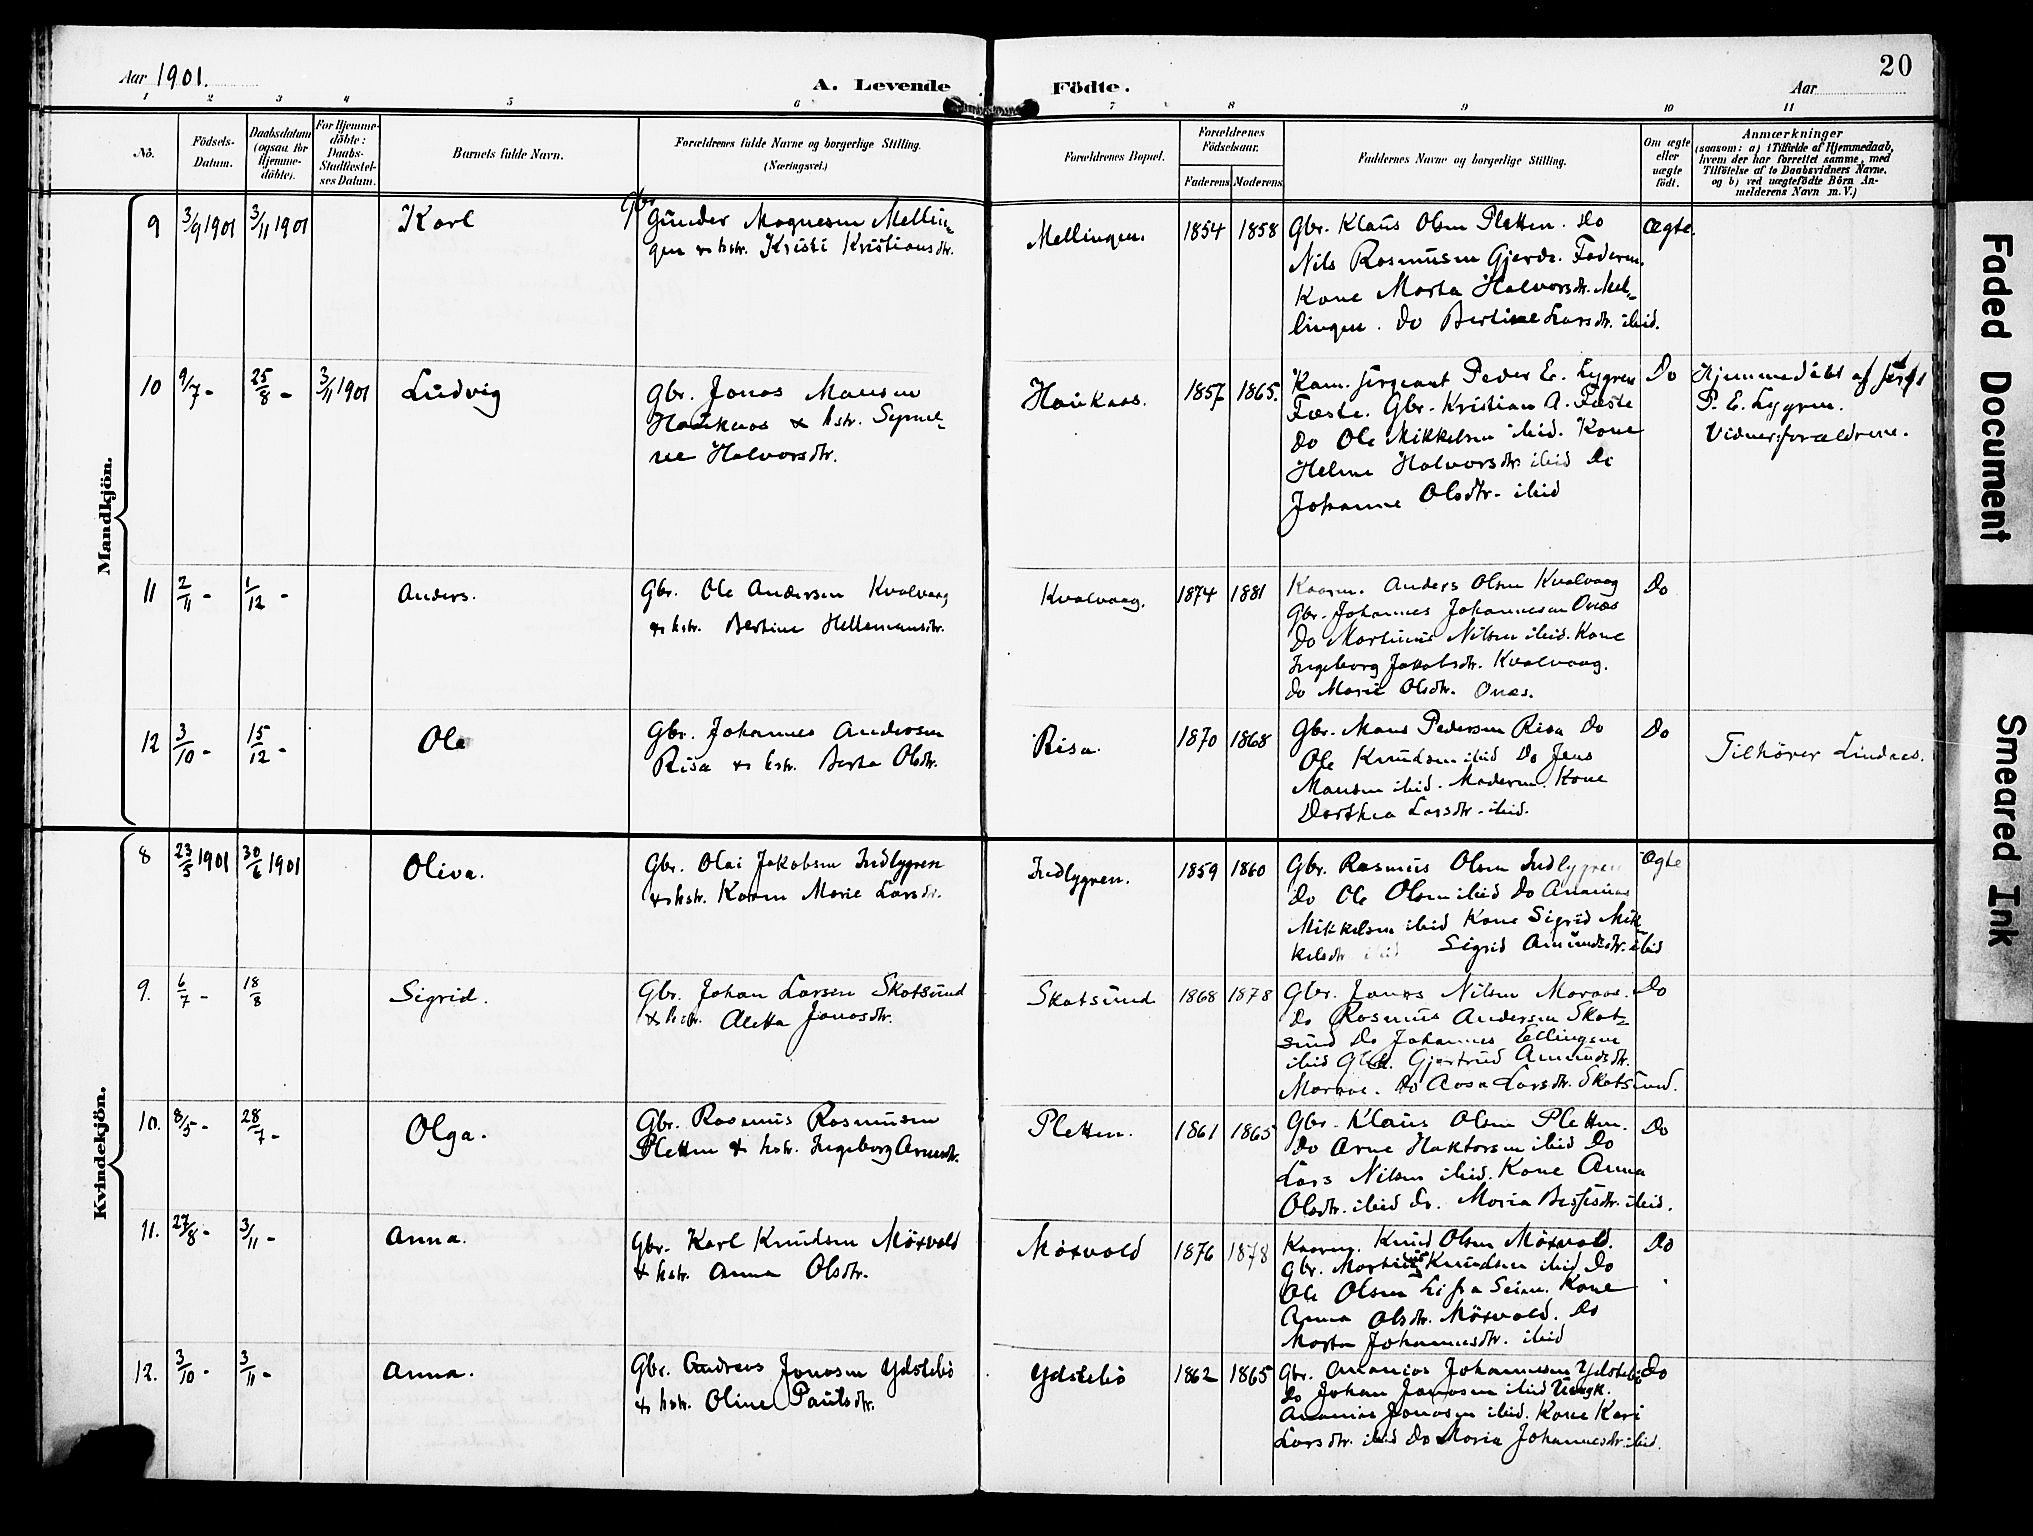 Aar 1901.
A. Levende Födte.
20
Aar
1 2 3 4 5 6 7 8 9 10 11
No.
Födsels-
Datum.
Daabsdatum
(ogsaa for
Hjemme-
döbte).
For Hjemme-
döbte:
Daabs-
Stadfæstel-
ses Datum.
Barnets fulde Navn.
Forældrenes fulde Navne og borgerlige Stilling.
(Næringsvei.)
Forældrenes Bopæl.
Forældrenes
Födselsaar.
Faderens
Moderens
Faddernes Navne og borgerlige Stilling.
Om ægte
eller
uægte
födt.
Anmærkninger
(saasom: a) i Tilfælde af Hjemmedaab,
hvem der har forrettet samme, med
Tilföielse af to Daabsvidners Navne,
og b) ved uægtefödte Börn An-
melderens Navn m. V.)
Mandkjön.
9 3/9 1901 3/11 1901 Karl
Gbr.
Gunder Magnesen Mellin-
gen & hstr. Kristi Kristiansdtr.
Mellingen. 1854 1858
Gbr. Klaus Olsen Pletten. Do
Nils Rasmusen Gjerde. Faderen.
Kone Marta Halvorsdtr. Mel-
lingen. Do Bertine Larsdtr. ibid.
Ægte.
10 9/7 - 25/8 - 3/11 1901 Ludvig
Gbr. Jonas Monsen
Haukaas & hstr. Semi-
ne Halvorsdtr.
Haukaas. 1857 1865.
Kom. sergeant Peder E. Lygren
Fæste. Gbr. Kristian A. Fæste
Do Ole Mikkelsen ibid. Kone
Helene Halvorsdtr ibid Do
Johanne Olsdtr. ibid
Do
Hjemmedöbt af serg
P. E. Lygren.
Vidner: forældrene.
11 2/11 - 1/12 - Anders.
Gbr. Ole Andersen Kvalvaag
& hstr. Bertine Hellemansdtr.
Kvalvaag. 1874 1881
Kaarm. Anders Olsen Kvalvaag
Gbr. Johannes Johannesen Onæs
Do Martinus Nilsen ibid. Kone
Ingeborg Jakobsdtr. Kvalvaag.
Do Marie Olsdtr. Onæs.
Do
12 3/10 - 15/12 - Ole
Gbr. Johannes Andersen
Risa & hstr. Berta Olsdtr.
Risa. 1870 1868
Gbr. Mons Pedersen Risa Do
Ole Knudsen ibid Do Jens
Monsen ibid. Moderen. Kone
Dorthea Larsdtr. ibid.
Do
Tilhører Lindaas.
Kvindekjön.
8 23/5 1901 30/6 1901 Oliva.
Gbr. Olai Jakobsen Indlygren
& hstr. Karen Marie Larsdtr.
Indlygren. 1859 1860
Gbr. Rasmus Olsen Indlygren
Do Ole Olsen ibid Do Ananias
Mikkelsen ibid Kone Sigrid Mik-
kelsdtr ibid Sigrid Amundsdtr. ibid
Ægte
9. 6/7 - 18/8 Sigrid.
Gbr. Johan Larsen Skotsund
& hstr. Aletta Jonasdtr.
Skotsund 1868 1878
Gbr. Jonas Nilsen Maraas.
Do Rasmus Andersen Skot-
sund Do Johannes Ellingsen
ibid Gbr. Gjertrud Amundsdtr.
Maraas. Do Aasa Larsdtr. Skotsund.
Do
10. 8/5 - 28/7 - Olga.
Gbr. Rasmus Rasmusen
Pletten & hstr. Ingeborg Arnesdtr.
Pletten. 1861 1865
Gbr. Klaus Olsen Pletten.
Do Arne Haktorsen ibid Do
Lars Nilsen ibid. Kone Anna
Olsdtr. ibid Do. Maria ibid.
Do
11. 27/8 - 3/11 - Anna.
Gbr. Karl Knudsen Möxvold
& hstr. Anna Olsdtr.
Möxvold 1876 1878
Kaarm. Knud Olsen Möxvold.
Gbr. Martinus Knudsen ibid Do
Ole Olsen Li fra Seim. Kone
Anna Olsdtr. Möxvold. Do
Marta Johannesdtr. ibid
Do
12. 3/10 - 3/11 - Anna.
Gbr. Andreas Jonasen Ydstebö
& hstr. Oline Paulsdtr.
Ydstebö 1862 1865
Gbr. Ananias Johannesen Ydstebö
Do Johan Jonasen ibid Ungk.
Ananias Jonasen ibid. Kone Kari
Larsdtr. ibid Do Maria Johannesdtr. ibid.
Do
Faded Document
Smeared Ink